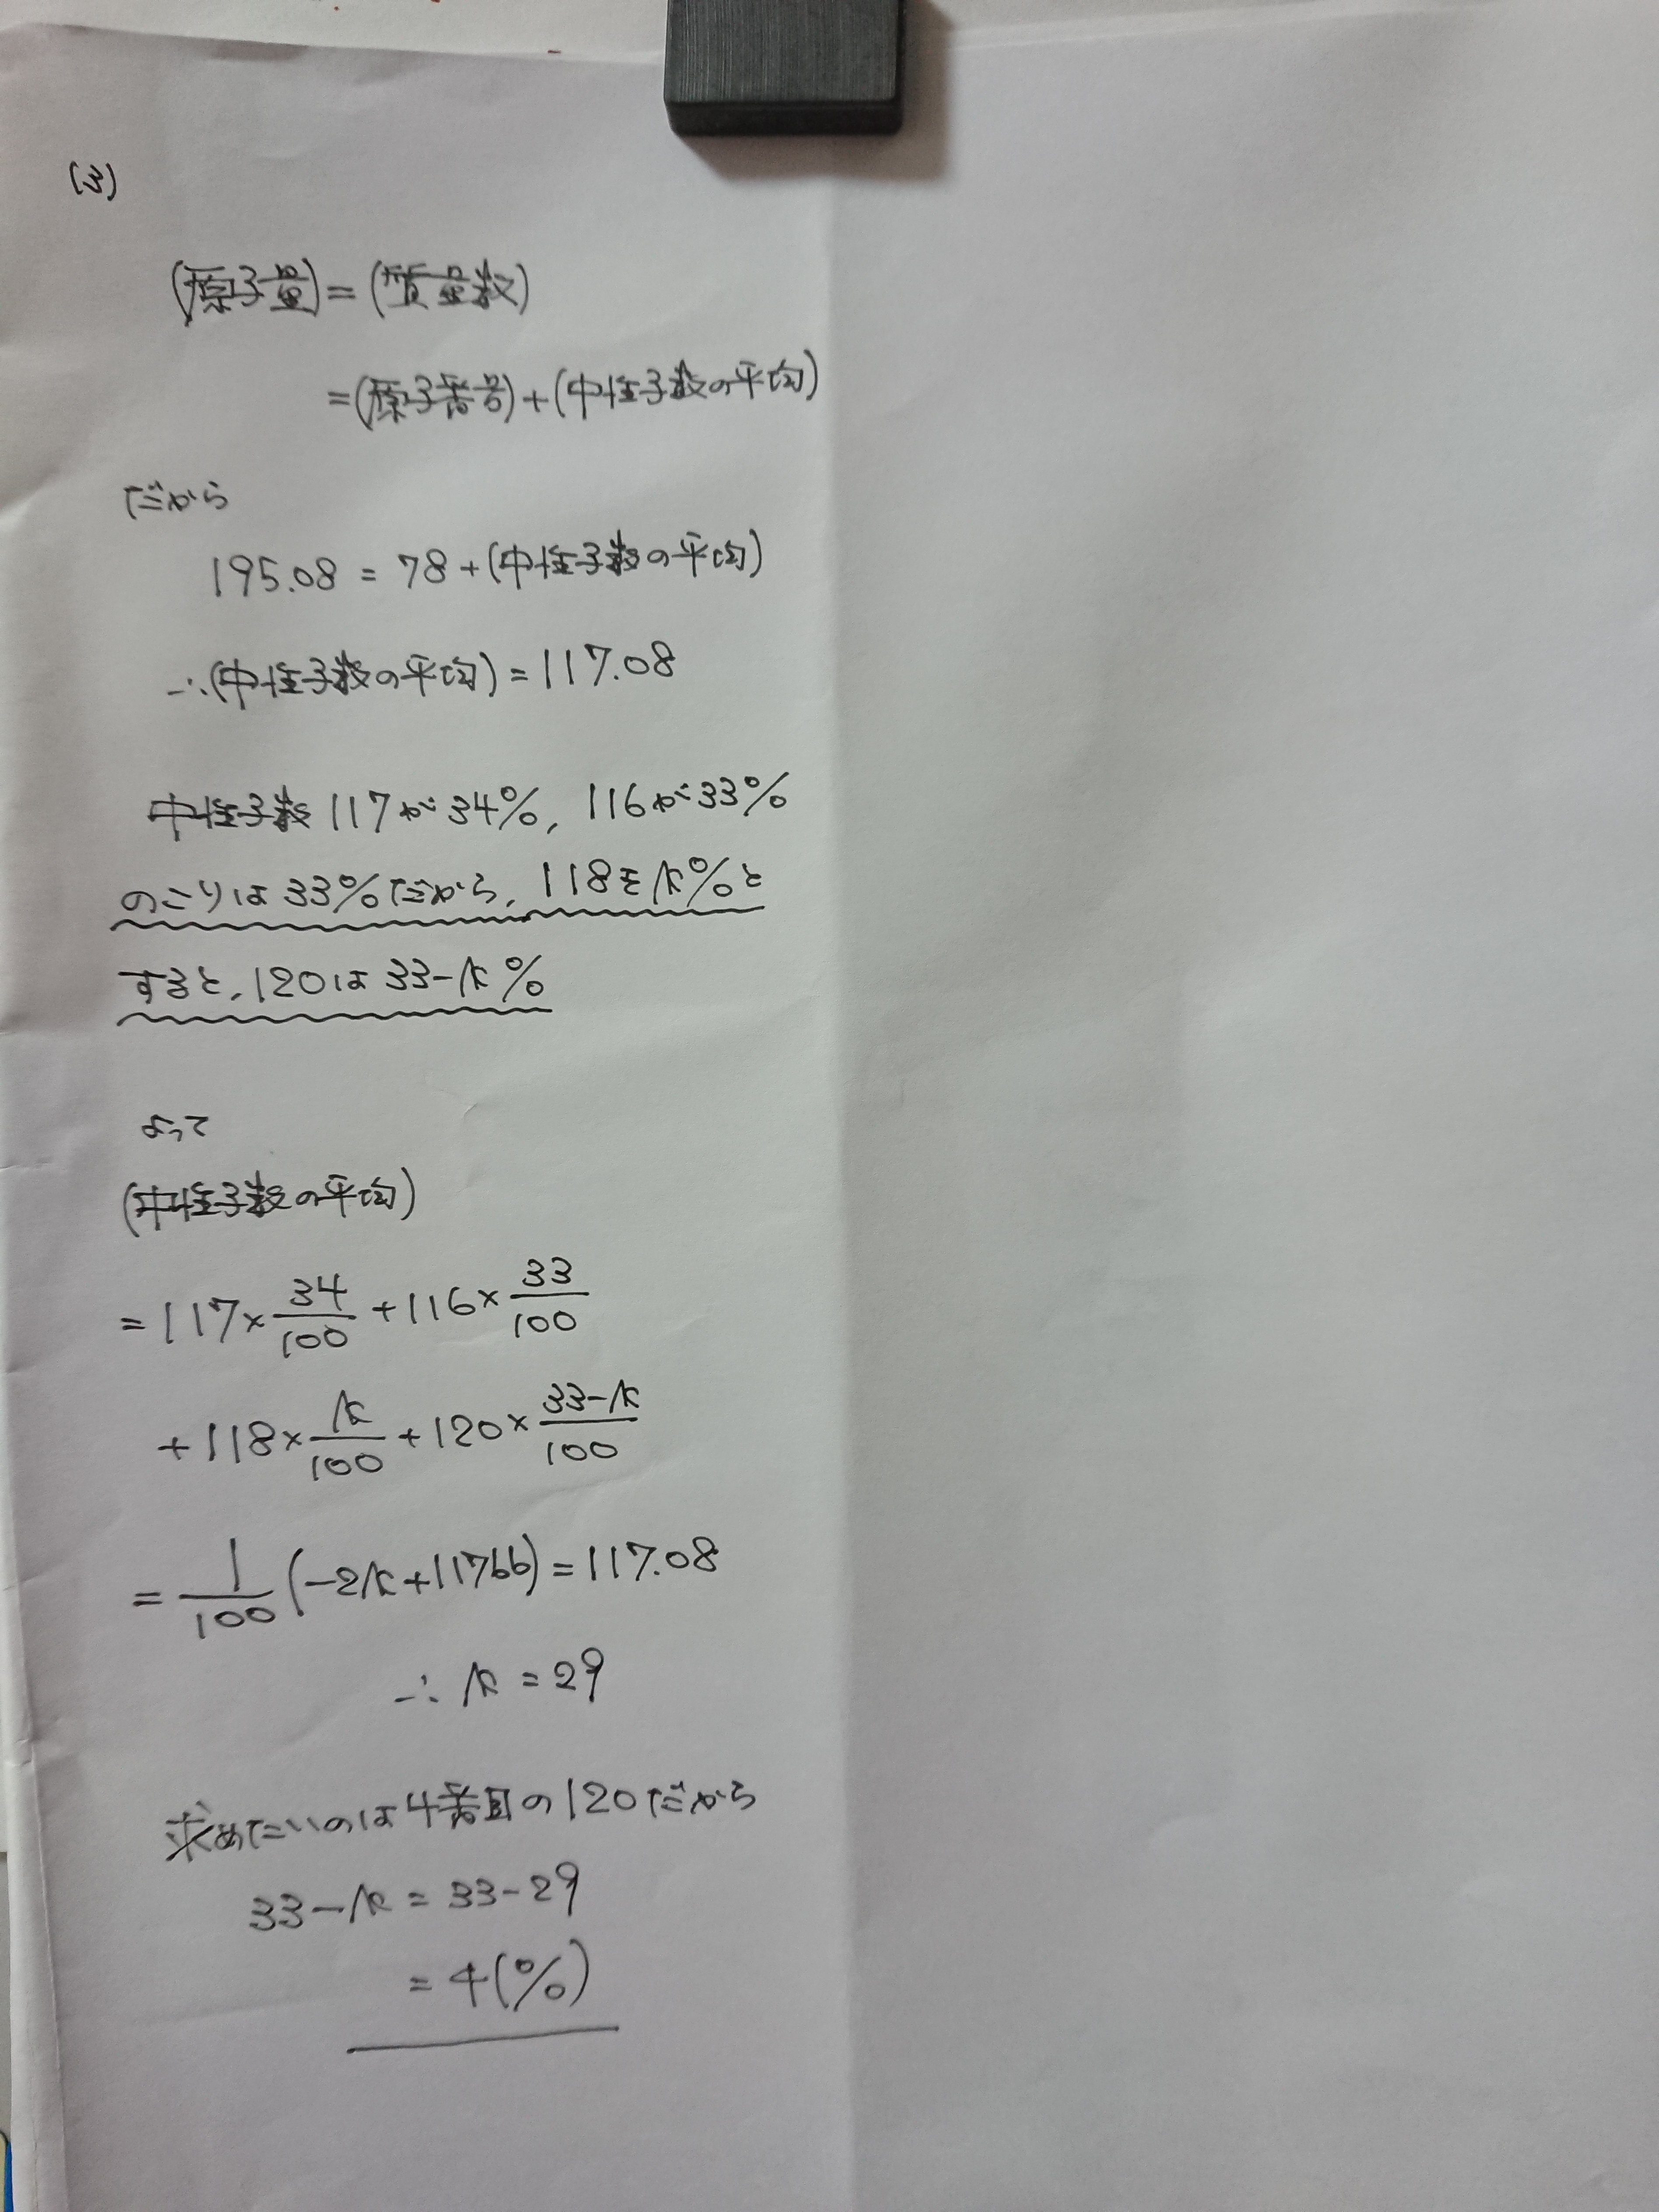 (3)
(原子量)=(質量数)
=(原子番号)+(中性子数の平均)
だから
195.08 = 78 + (中性子数の平均)
∴(中性子数の平均) = 117.08
中性子数 117が34%, 116が33%
のこりは33%だから, 118をk%と
すると, 120は33-k%
よって
(中性子数の平均)
= 117 × 34/100 + 116 × 33/100
+ 118 × k/100 + 120 × 33-k/100
= 1/100 (-2k+11766) = 117.08
∴ k = 29
求めたいのは4番目の120だから
33-k = 33-29
= 4(%)